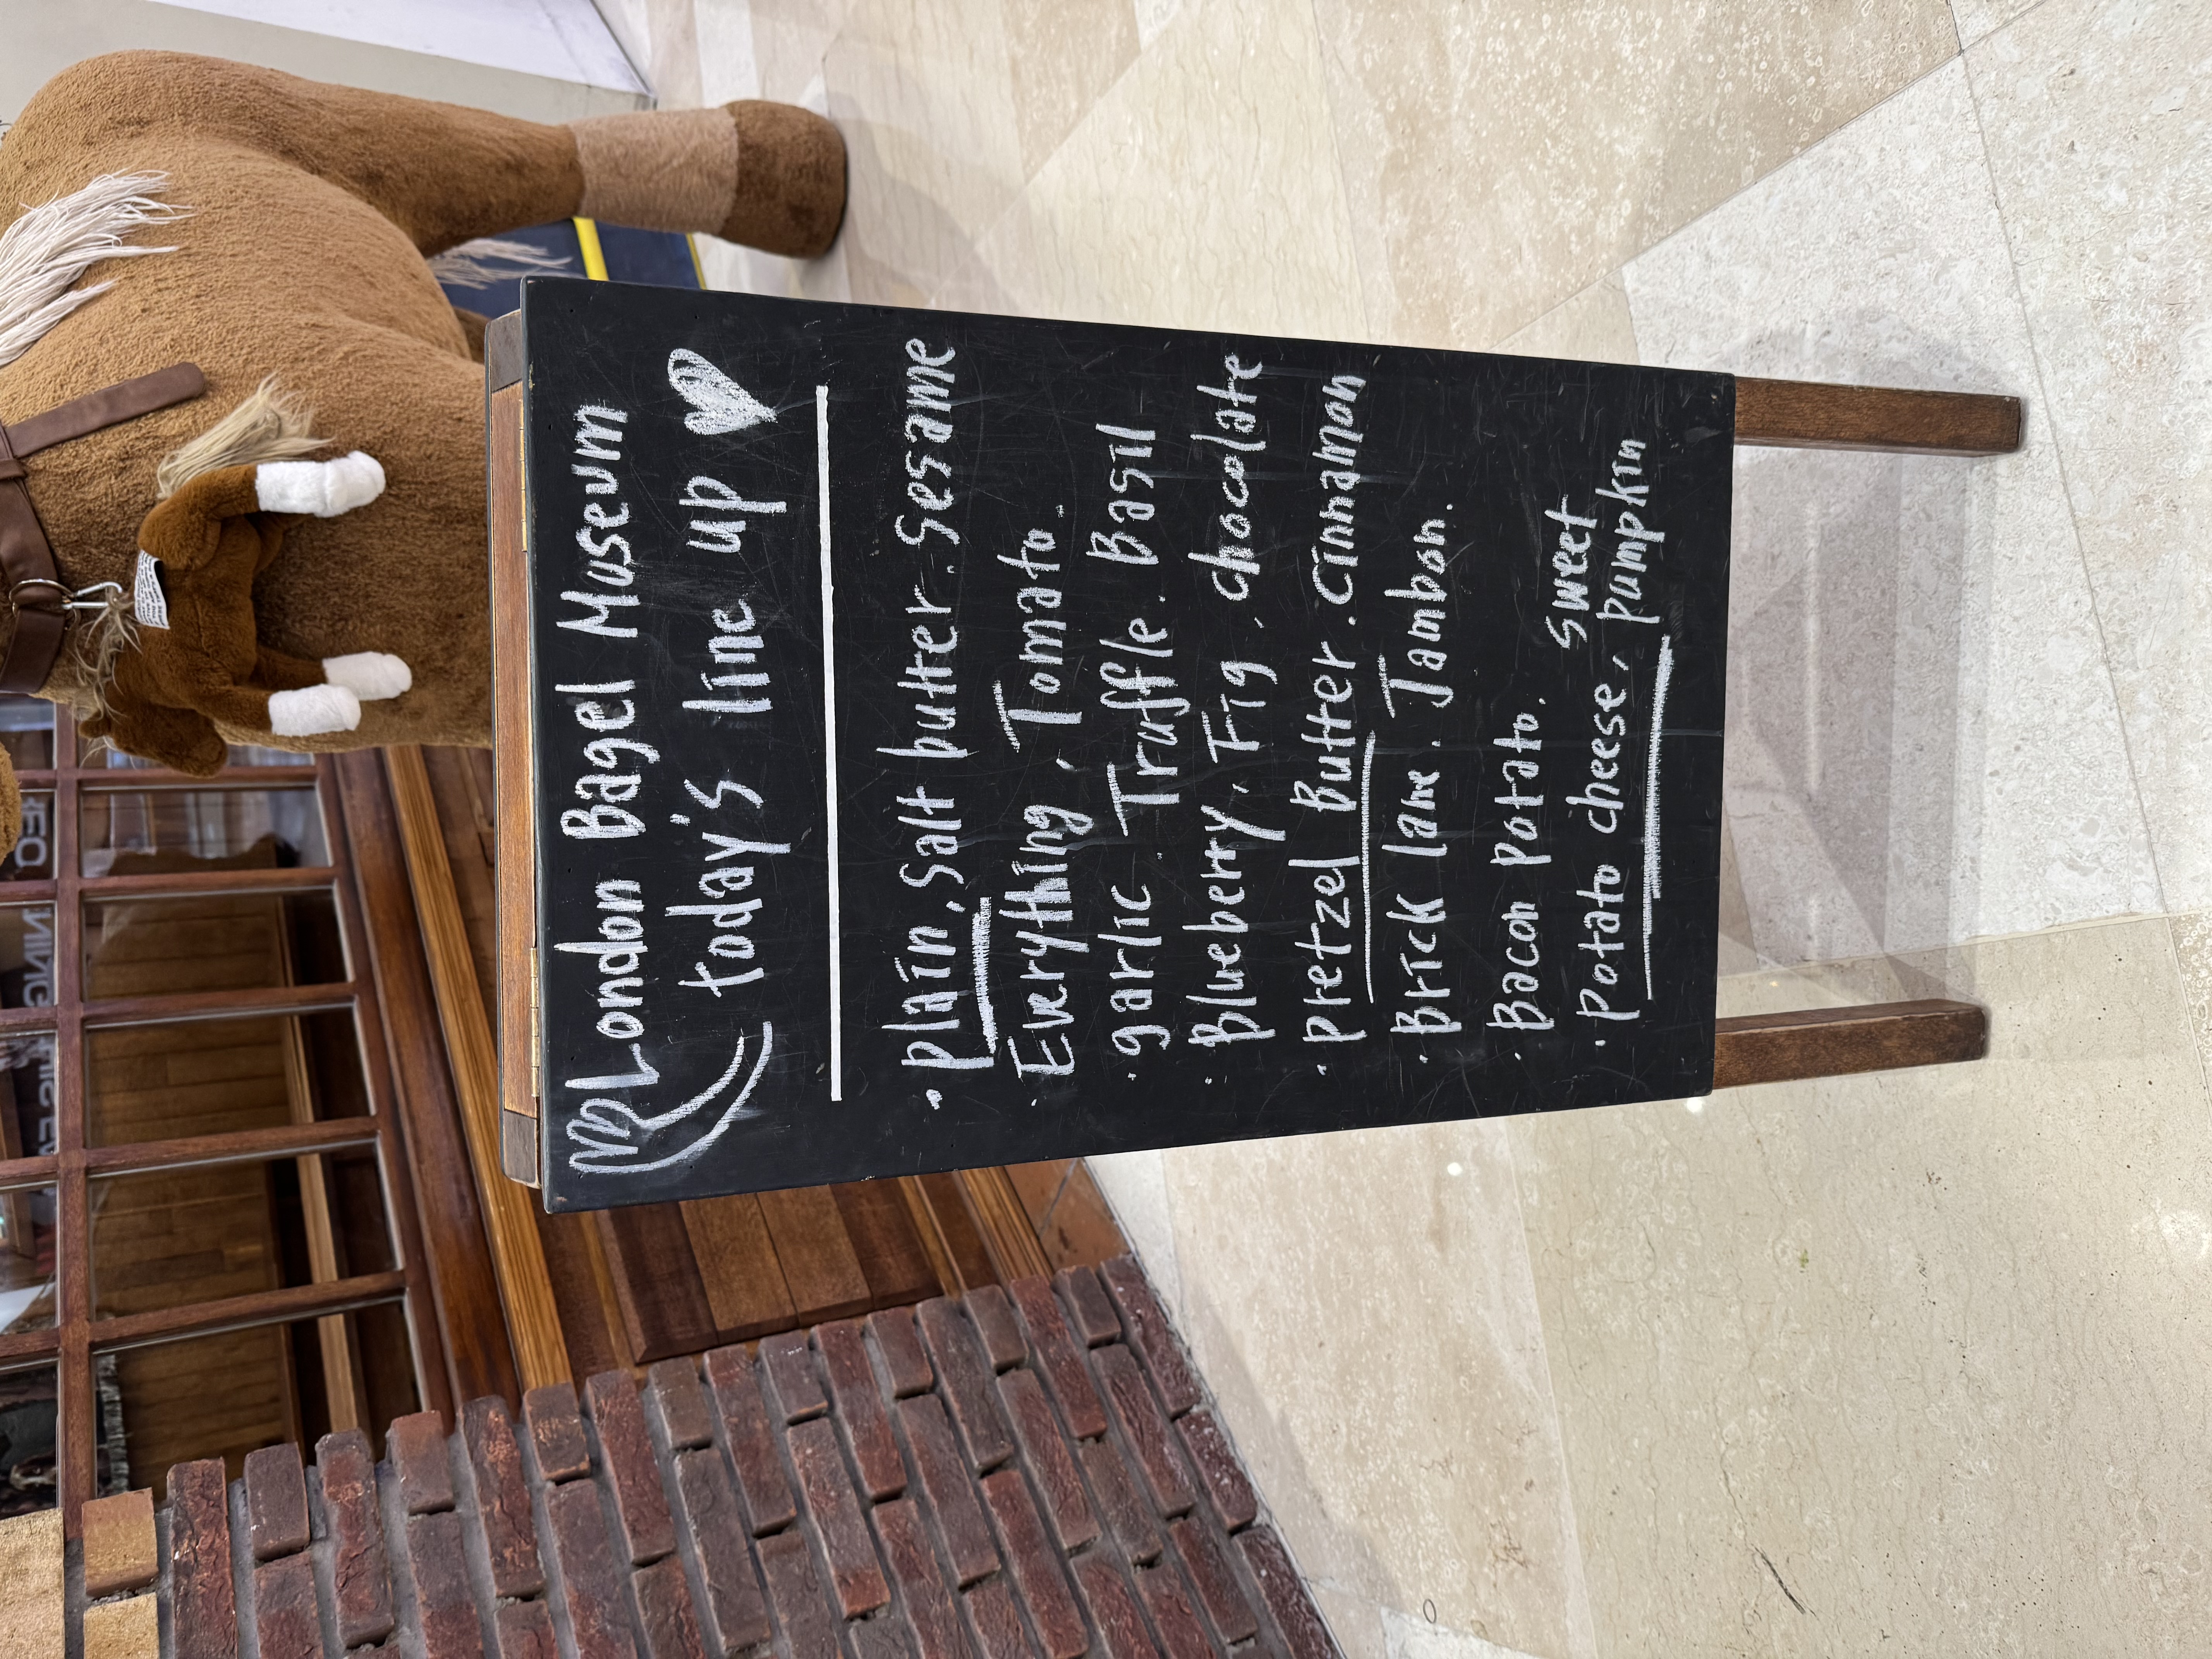 London Bagel Museum
today's line up
· plain, Salt butter. Sesame
· Everything, Tomato.
· garlic Truffle. Basil
· Blueberry. Fig, chocolate
· pretzel Butter. Cinnamon
· Brick lane. Jambon.
· Bacon potato.
· potato cheese, sweet pumpkin